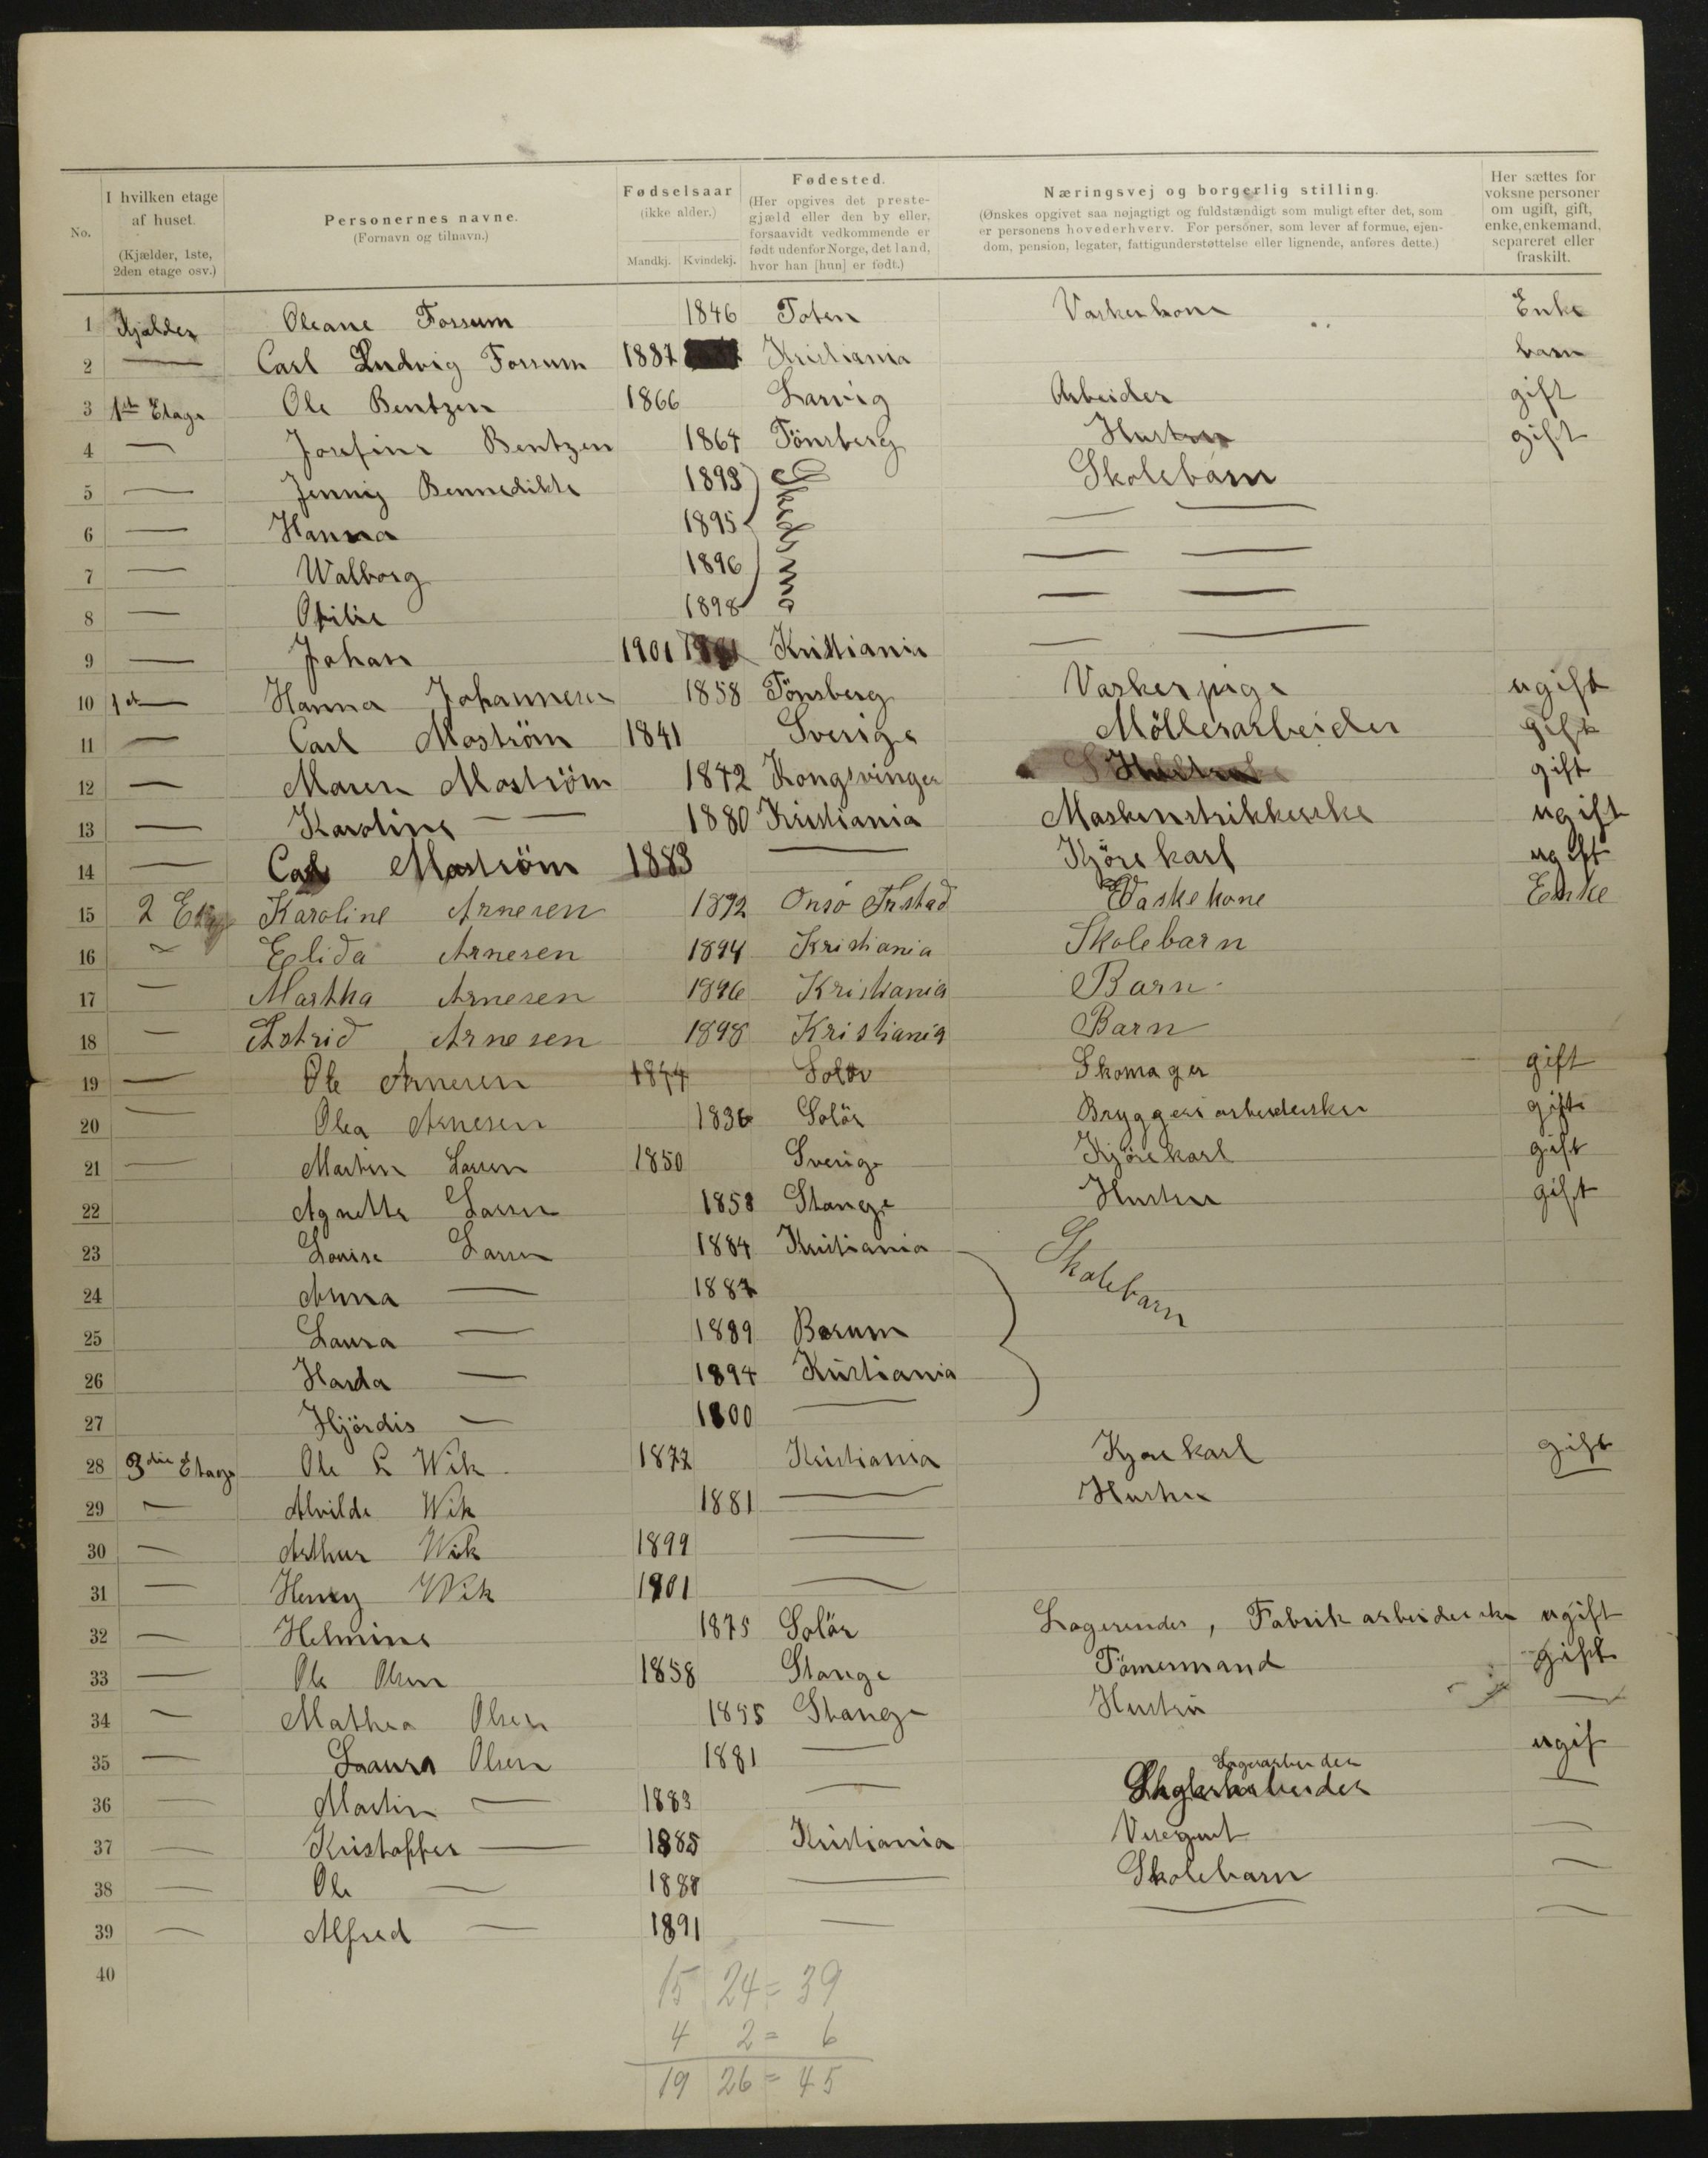 No.
I hvilken etage af huset. (Kjælder, 1ste, 2den etage osv.)
Personernes navne. (Fornavn og tilnavn.)
Fødselsaar (ikke alder.) Mandkj. Kvindekj.
Fødested. (Her opgives det prestegjæld eller den by eller, forsaavidt vedkommende er født udenfor Norge, det land, hvor han [hun] er født.)
Næringsvej og borgerlig stilling. (Ønskes opgivet saa nøjagtigt og fuldstændigt som muligt efter det, som er personens hovederhverv. For personer, som lever af formue, ejendom, pension, legater, fattigunderstøttelse eller lignende, anføres dette.)
Her sættes for voksne personer om ugift, gift, enke, enkemand, separeret eller fraskilt.
1 Kjælder Oleane Forsum 1846 Toten Vaskerkone Enke
2 — Carl Ludvig Forsum 1887 Kristiania barn
3 1ste Etage Ole Bentzen 1866 Larvig Arbeider gift
4 — Josefine Bentzen 1864 Tönsberg Hustru gift
5 — Jenny Bennedikte 1893 Skedsmo Skolebarn
6 — Hanna 1895 — —
7 — Walborg 1896 — —
8 — Otilie 1898 — —
9 — Johan 1901 Kristiania — —
10 1ste — Hanna Johannesen 1858 Tönsberg Vaskerpige ugift
11 — Carl Moström 1841 Sverige Möllerarbeider gift
12 — Maren Moström 1842 Kongsvinger gift
13 — Karoline — — 1880 Kristiania Maskinstrikkerske ugift
14 — Carl Moström 1883 — Kjörekarl ugift
15 2 Etag Karoline Arnesen 1872 Onsö Vaskekone Enke
16 — Elida Arnesen 1894 Kristiania Skolebarn
17 — Martha Arnesen 1896 Kristiania Barn
18 — Astrid Arnesen 1898 Kristiania Barn
19 — Ole Arnesen 1844 Solör Skomager gift
20 — Olea Arnesen 1836 Solör Bryggeriarbeiderske gift
21 — Martin Larsen 1850 Sverige Kjörekarl gift
22 Agnethe Larsen 1858 Stange Hustru gift
23 Louise Larsen 1884 Kristiania Skolebarn
24 Anna — 1887
25 Laura — 1889 Bærum
26 Harda — 1894 Kristiania
27 Hjördis — 1900 —
28 3die Etage Ole L Wik 1877 Kristiania Kjörekarl gift
29 — Alvilde Wik 1881 — Hustru
30 — Arthur Wik 1899 —
31 — Henry Wik 1901 —
32 — Helmine 1875 Solör Logerende, Fabrikarbeiderske ugift
33 — Ole Olsen 1858 Stange Tömermand gift
34 — Mathea Olsen 1855 Stange Hustru —
35 — Laura Olsen 1881 — ugif
36 — Martin — 1883 — Lagerarbeider —
37 — Kristoffer — 1885 Kristiania Visergut —
38 — Ole — 1888 — Skolebarn —
39 — Alfred — 1891 — — —
40
15 24 = 39
4 2 = 6
19 26 = 45